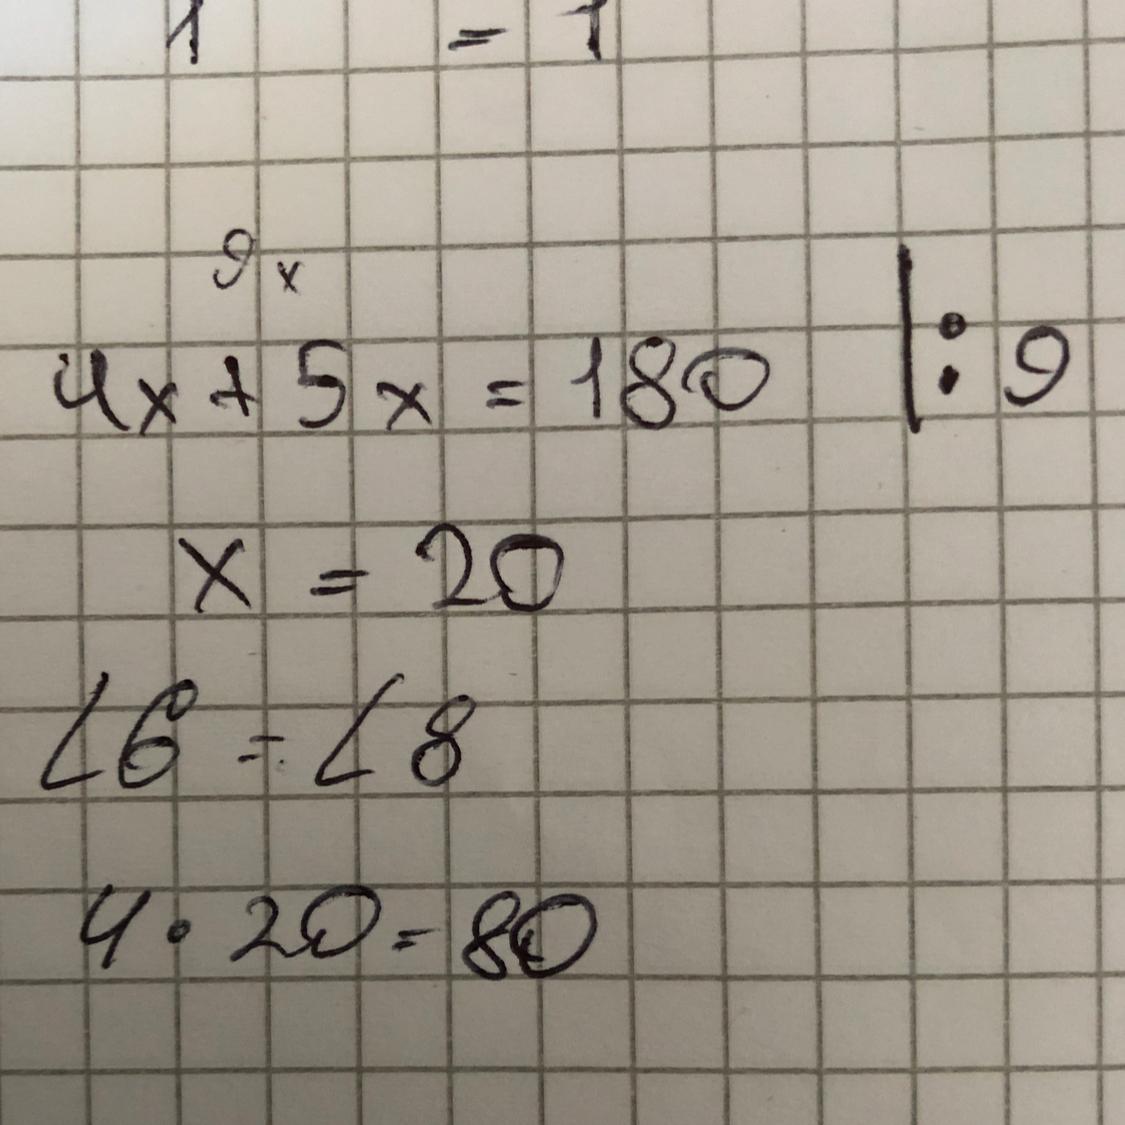 1 = 1
9x
4x + 5x = 180 |: 9
x = 20
∠6 = ∠8
4 • 20 = 80